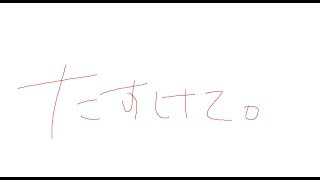 たすけて。